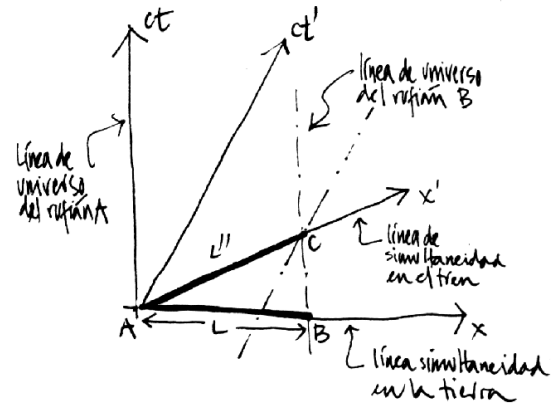 ct
ct'
línea de universo
del rufián B
Línea de
universo
del rufián A
x'
L"
C
línea de
simultaneidad
en el tren
A
L
B
x
línea simultaneidad
en la tierra